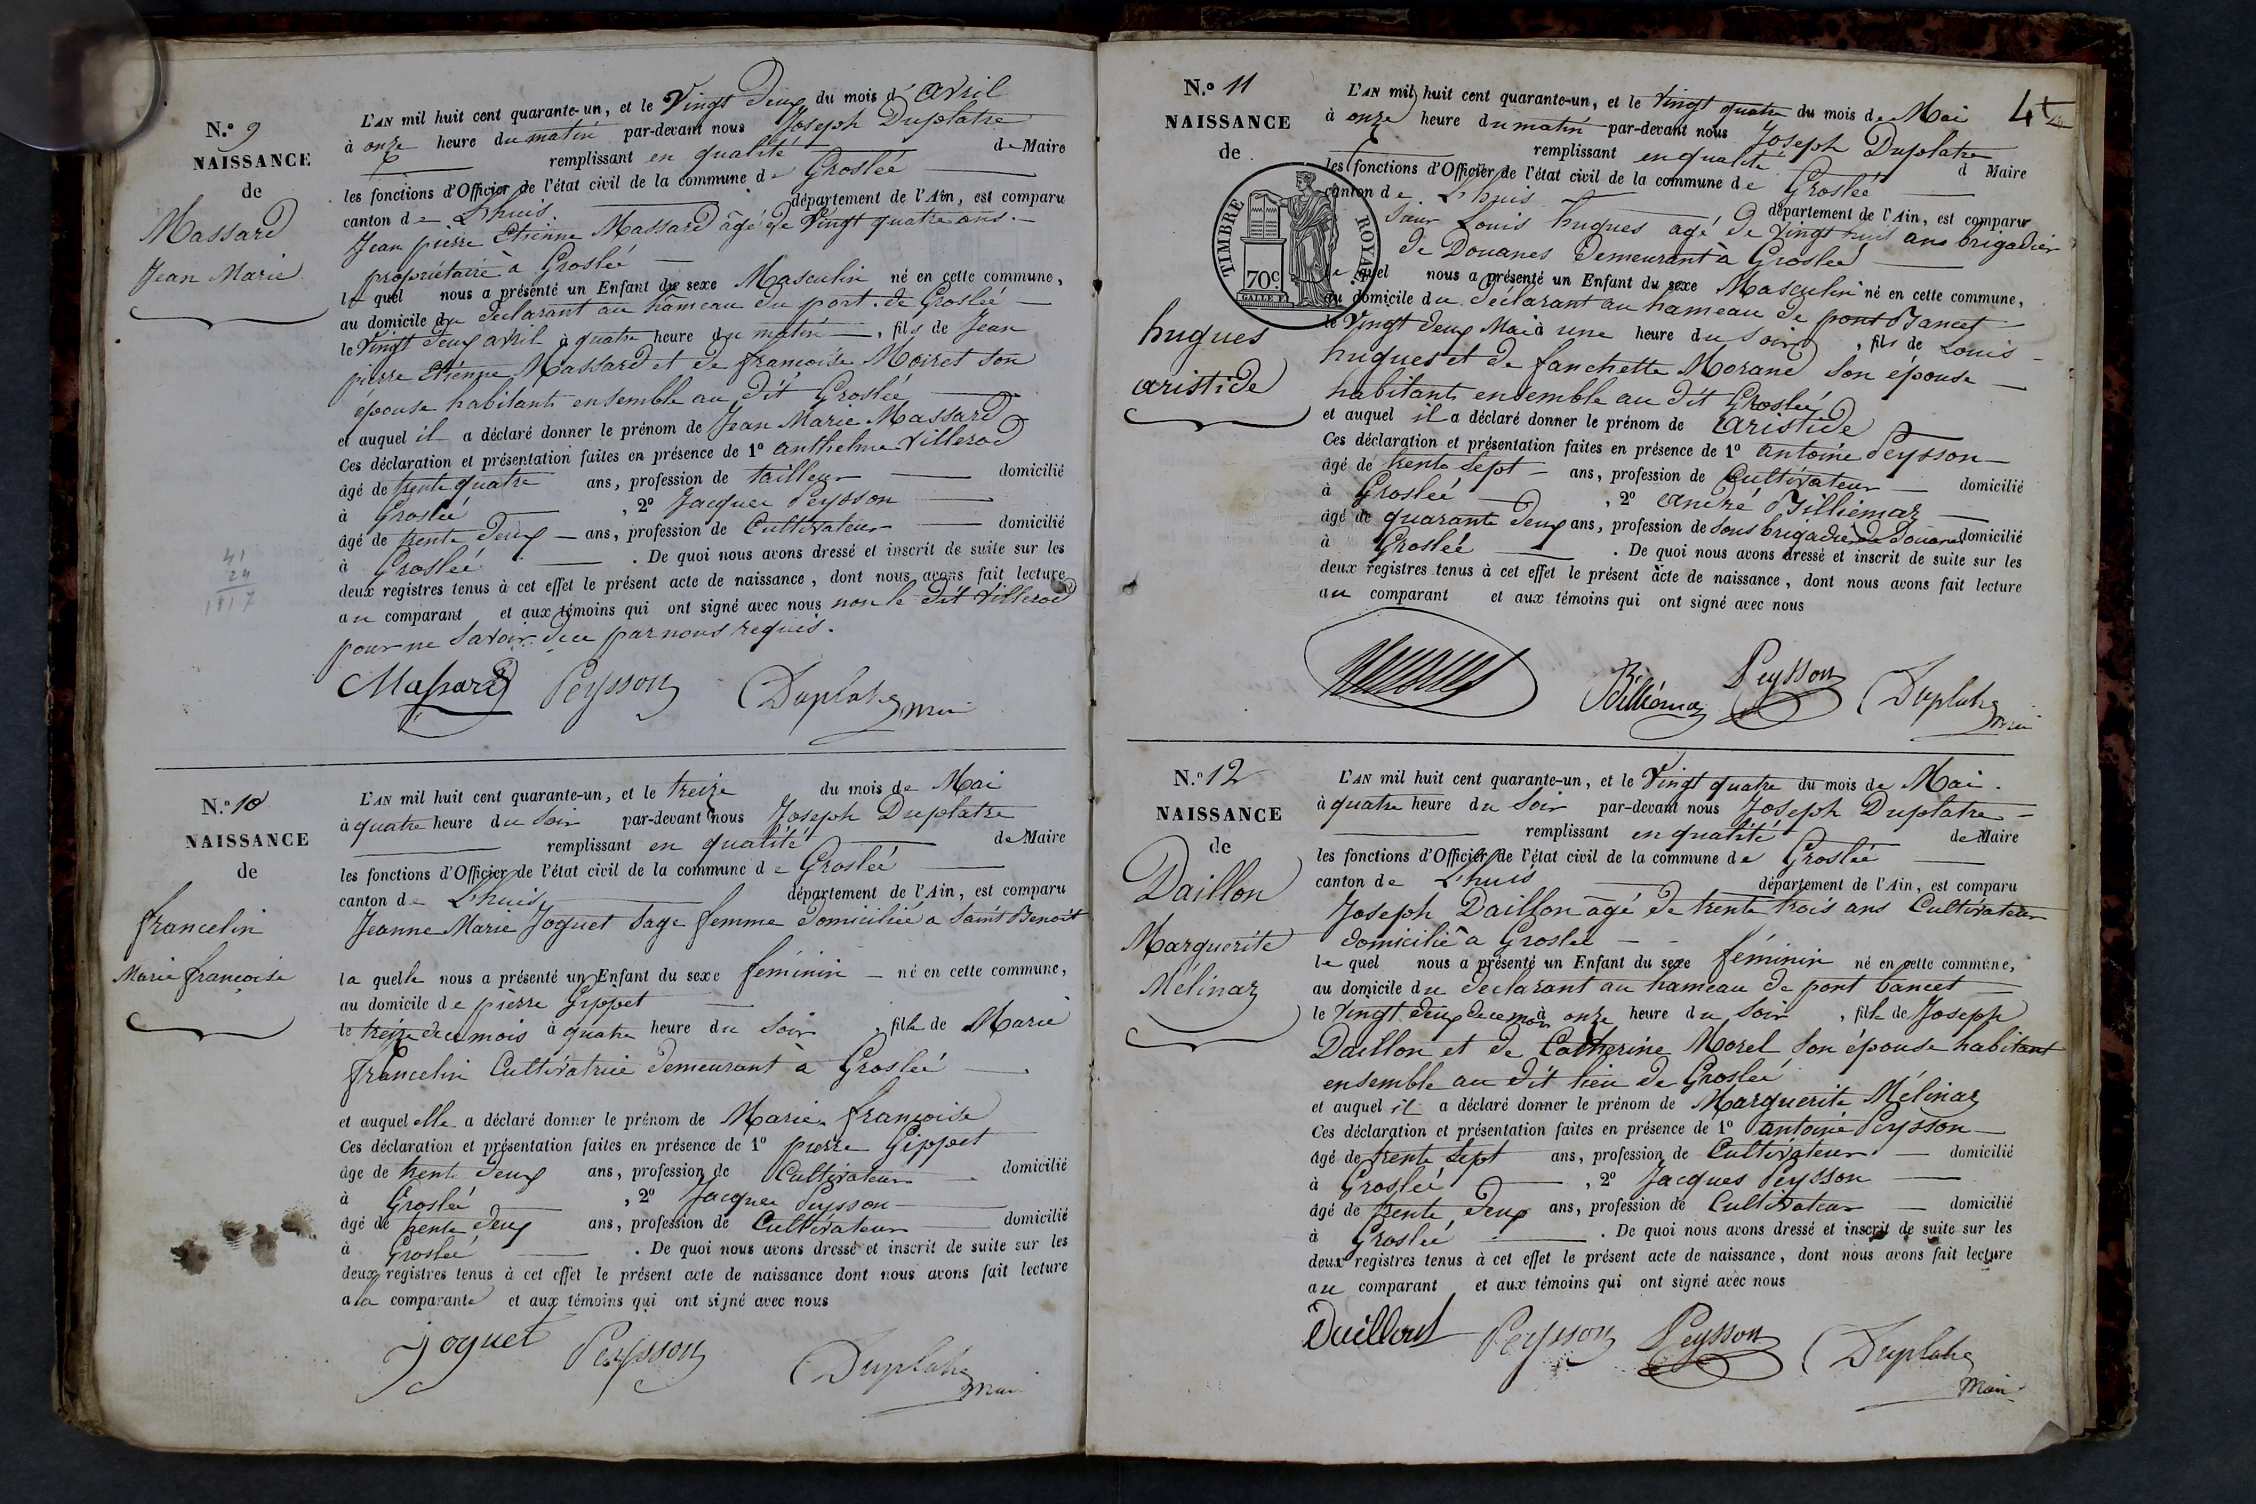 N.º 9
NAISSANCE
de
Massard
Jean Marie
L'AN mil huit cent quarante-un, et le Vingt deux du mois d'avril
à onze heure du matin par-devant nous Joseph Duplatre
remplissant en qualité de Maire
les fonctions d'Officier de l'état civil de la commune de Groslée
canton de L'huis département de l'Ain, est comparu
Jean pierre Etienne Massard âgé de Vingt quatre ans
propriétaire à Groslée
le quel nous a présenté un Enfant du sexe Masculin né en cette commune,
au domicile du déclarant au hameau du port de Groslée
le Vingt deux avril à quatre heure du matin, fils de Jean
pierre Etienne Massard et de françoise Moiret son
épouse habitants ensemble au dit Groslée
et auquel il a déclaré donner le prénom de Jean Marie Massard
Ces déclaration et présentation faites en présence de 1º anthelme Villerod
âgé de trente quatre ans, profession de tailleur domicilié
à Groslée, 2º Jacques Peysson
âgé de trente deux ans, profession de Cultivateur domicilié
à Groslée. De quoi nous avons dressé et inscrit de suite sur les
deux registres tenus à cet effet le présent acte de naissance, dont nous avons fait lecture
au comparant et aux témoins qui ont signé avec nous non le dit Villerod
pour ne savoir de ce par nous requis.
Massard Peysson Duplatre
41
24
1817
N.º 10
NAISSANCE
de
francelin
Marie françoise
L'AN mil huit cent quarante-un, et le treize du mois de Mai
à quatre heure du soir par-devant nous Joseph Duplatre
remplissant en qualité de Maire
les fonctions d'Officier de l'état civil de la commune de Groslée
canton de L'huis département de l'Ain, est comparu
Jeanne Marie Joguet sage femme domiciliée a Saint Benoit
la quelle nous a présenté un Enfant du sexe féminin né en cette commune,
au domicile de pierre Gippet
le treize du mois à quatre heure du soir, fille de Marie
francelin Cultivatrice demeurant à Groslée
et auquel elle a déclaré donner le prénom de Marie françoise
Ces déclaration et présentation faites en présence de 1º pierre Gippet
âge de trente deux ans, profession de Cultivateur domicilié
à Groslée, 2º Jacques Peysson
âgé de trente deux ans, profession de Cultivateur domicilié
à Groslée. De quoi nous avons dressé et inscrit de suite sur les
deux registres tenus à cet effet le présent acte de naissance dont nous avons fait lecture
a la comparante et aux témoins qui ont signé avec nous
Joguet Peysson Duplatre
N.º 11
NAISSANCE
de
TIMBRE ROYAL
70c
hugues
aristide
4
L'AN mil huit cent quarante-un, et le Vingt quatre du mois de Mai
à onze heure du matin par-devant nous Joseph Duplatre
remplissant en qualité d Maire
les fonctions d'Officier de l'état civil de la commune de Groslée
canton de L'huis département de l'Ain, est comparu
Sieur Louis hugues agé de Vingt huit ans brigadier
de Douanes demeurant à Groslée
le quel nous a présenté un Enfant du sexe Masculin né en cette commune,
au domicile du déclarant au hameau de pont Bancet
le Vingt deux Mai à une heure du soir, fils de Louis
hugues et de fanchette Morand son épouse
habitants ensemble au dit Groslée
et auquel il a déclaré donner le prénom de aristide
Ces déclaration et présentation faites en présence de 1º antoine Peysson
âgé de trente sept ans, profession de Cultivateur domicilié
à Groslée, 2º andré Billiemaz
âgé de quarante deux ans, profession de sous brigadier de Douane domicilié
à Groslée. De quoi nous avons dressé et inscrit de suite sur les
deux registres tenus à cet effet le présent acte de naissance, dont nous avons fait lecture
au comparant et aux témoins qui ont signé avec nous
Billiémaz Peysson Duplatre
N.º 12
NAISSANCE
de
Daillon
Marguerite
Mélinaz
L'AN mil huit cent quarante-un, et le Vingt quatre du mois de Mai.
à quatre heure du soir par-devant nous Joseph Duplatre
remplissant en qualité de Maire
les fonctions d'Officier de l'état civil de la commune de Groslée
canton de L'huis département de l'Ain, est comparu
Joseph Daillon âgé de trente trois ans Cultivateur
domicilié a Groslée
le quel nous a présenté un Enfant du sexe féminin né en cette commune,
au domicile du déclarant au hameau de pont bancet
le Vingt deux du mois à onze heure du soir, fille de Joseph
Daillon et de Catherine Morel son épouse habitant
ensemble au dit lieu de Groslée
et auquel il a déclaré donner le prénom de Marguerite Mélinaz
Ces déclaration et présentation faites en présence de 1º antoine Peysson
âgé de trente sept ans, profession de Cultivateur domicilié
à Groslée, 2º Jacques Peysson
âgé de trente deux ans, profession de Cultivateur domicilié
à Groslée. De quoi nous avons dressé et inscrit de suite sur les
deux registres tenus à cet effet le présent acte de naissance, dont nous avons fait lecture
au comparant et aux témoins qui ont signé avec nous
Daillout Peysson Peysson Duplatre